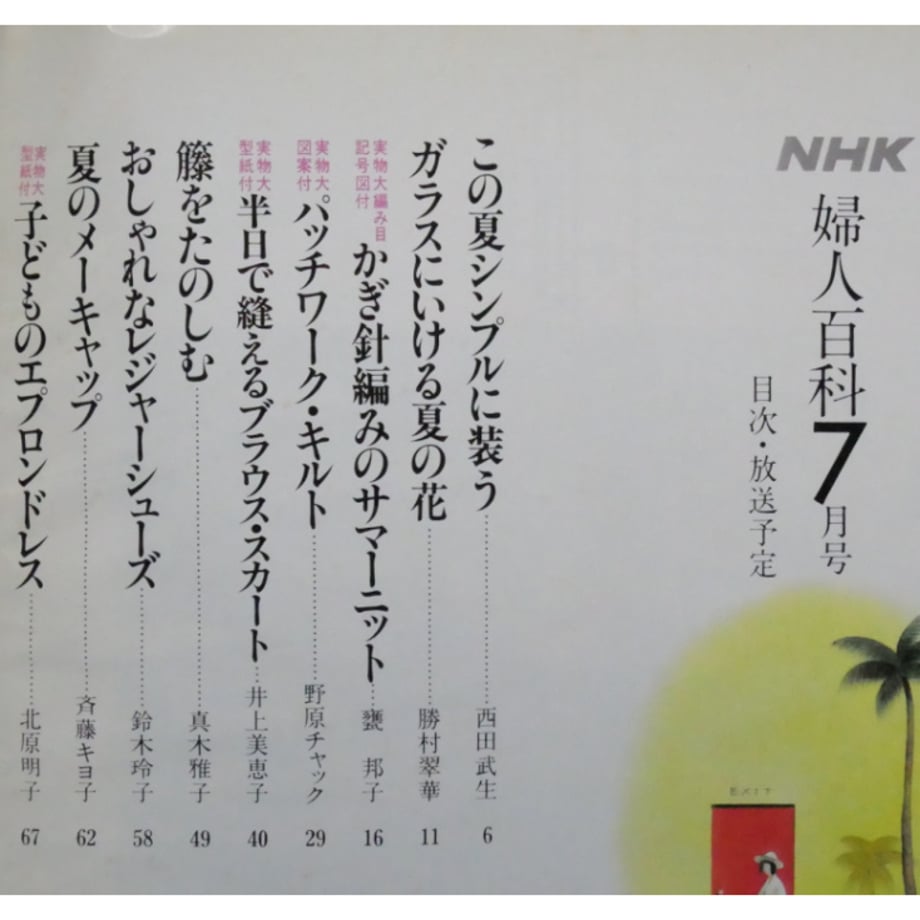 NHK
婦人百科7月号
目次・放送予定
この夏シンプルに装う 西田武生 6
ガラスにいける夏の花 勝村翠華 11
実物大編み目
記号図付
かぎ針編みのサマーニット 甕 邦子 16
実物大
図案付
パッチワーク・キルト 野原チャック 29
実物大
型紙付
半日で縫えるブラウス・スカート 井上美恵子 40
籐をたのしむ 真木雅子 49
おしゃれなレジャーシューズ 鈴木玲子 58
夏のメーキャップ 斉藤キヨ子 62
実物大
型紙付
子どものエプロンドレス 北原明子 67
EXIT